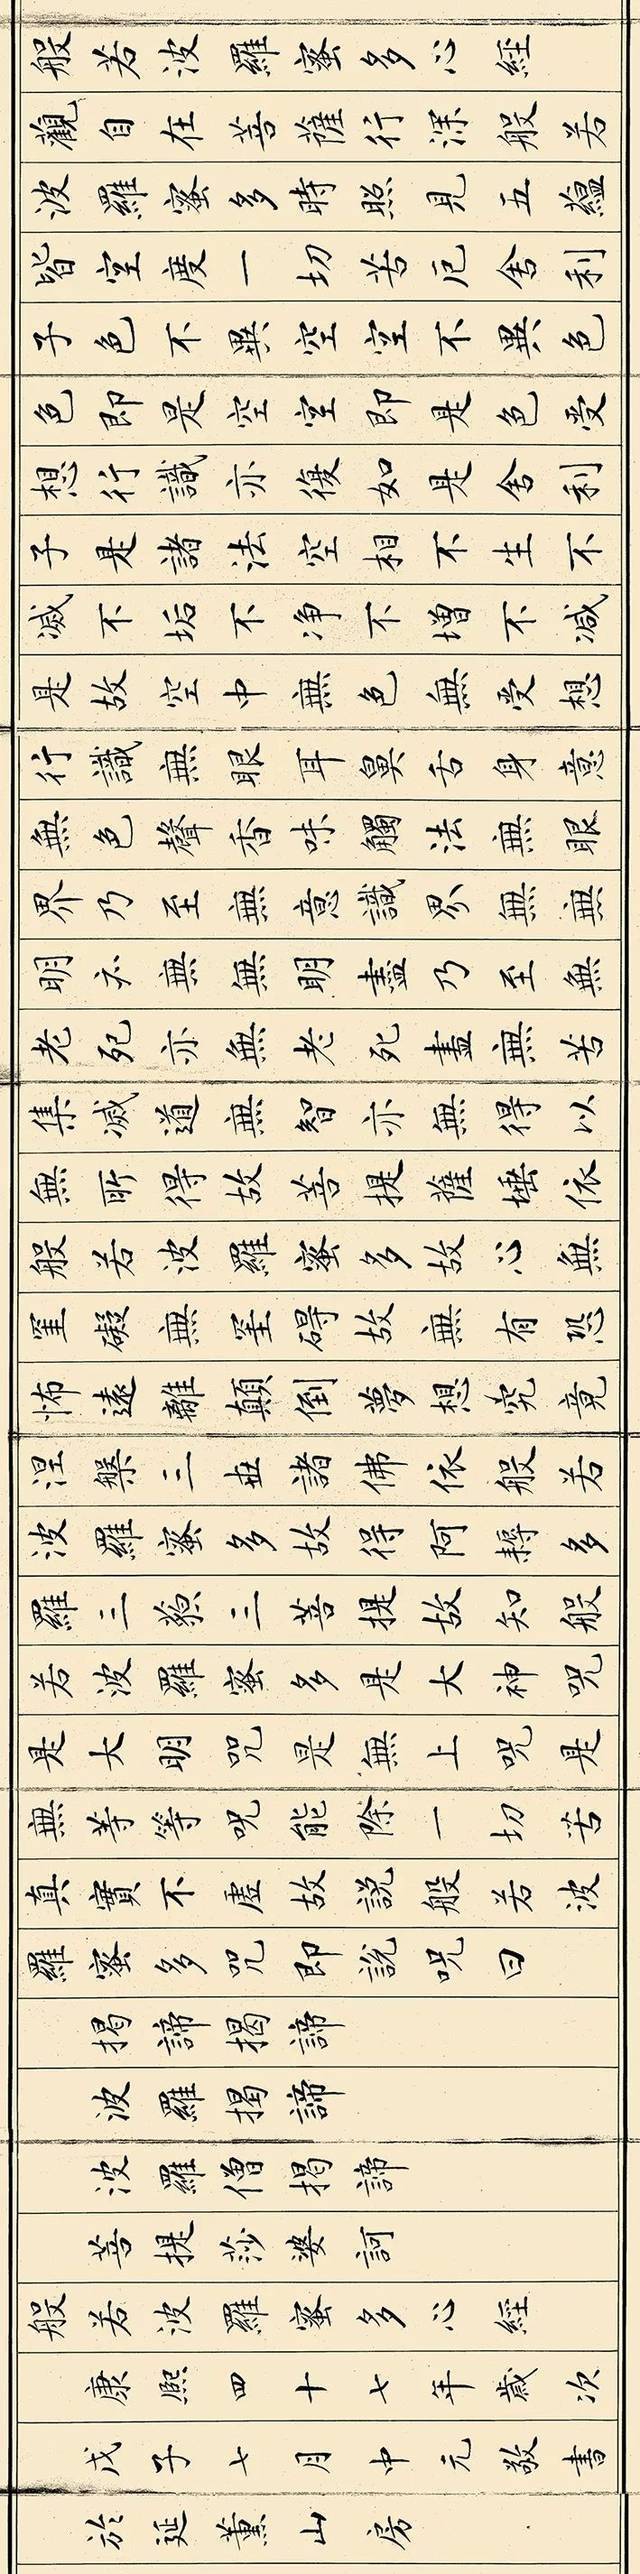 般若波羅蜜多心經
觀自在菩薩行深般若
波羅蜜多時照見五蘊
皆空度一切苦厄舍利
子色不異空空不異色
色即是空空即是色受
想行識亦復如是舍利
子是諸法空相不生不
滅不垢不净不增不減
是故空中無色無受想
行識無眼耳鼻舌身意
無色聲香味觸法無眼
界乃至無意識界無無
明亦無無明盡乃至無
老死亦無老死盡無苦
集滅道無智亦無得以
無所得故菩提薩埵依
般若波羅蜜多故心無
罣礙無罣碍故無有恐
怖遠離顛倒夢想究竟
涅槃三世諸佛依般若
波羅蜜多故得阿耨多
羅三藐三菩提故知般
若波羅蜜多是大神呪
是大明咒是無上呪是
無等等呪能除一切苦
真實不虛故説般若波
羅蜜多咒即說呪曰
揭諦揭諦
波羅揭諦
波羅僧揭諦
菩提莎婆訶
般若波羅蜜多心經
康熙四十七年歲次
戊子七月中元敬書
於延薰山房